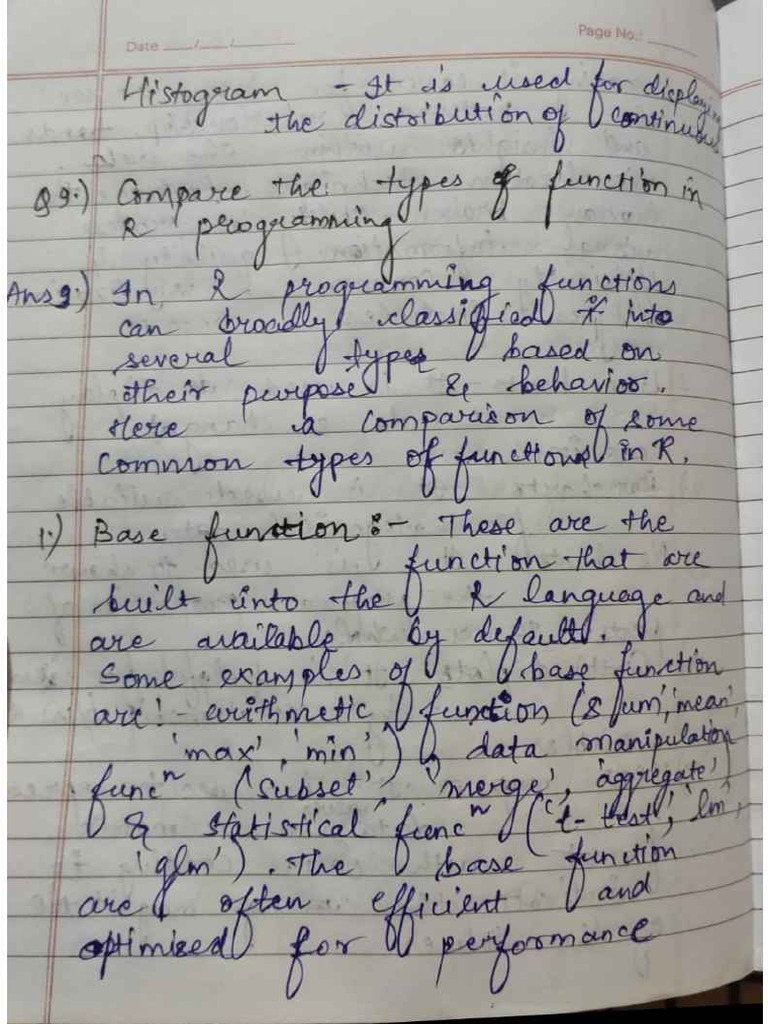 Date ___/___/______
Page No.: ______
Histogram - It is used for displaying
the distribution of continuous
Q 9.) Compare the types of function in
R programming
Ans 9.) In R programming functions
can broadly classified into
several types based on
their purpose & behavior.
Here a comparison of some
common types of functions in R.
1.) Base function :- These are the
function that are
built into the R language and
are available by default.
Some examples of base function
are:- arithmetic function ('sum', 'mean',
'max', 'min'), data manipulation
funcⁿ ('subset', 'merge', 'aggregate')
& statistical funcⁿ ('t-test', 'lm',
'glm'). The base function
are often efficient and
optimized for performance